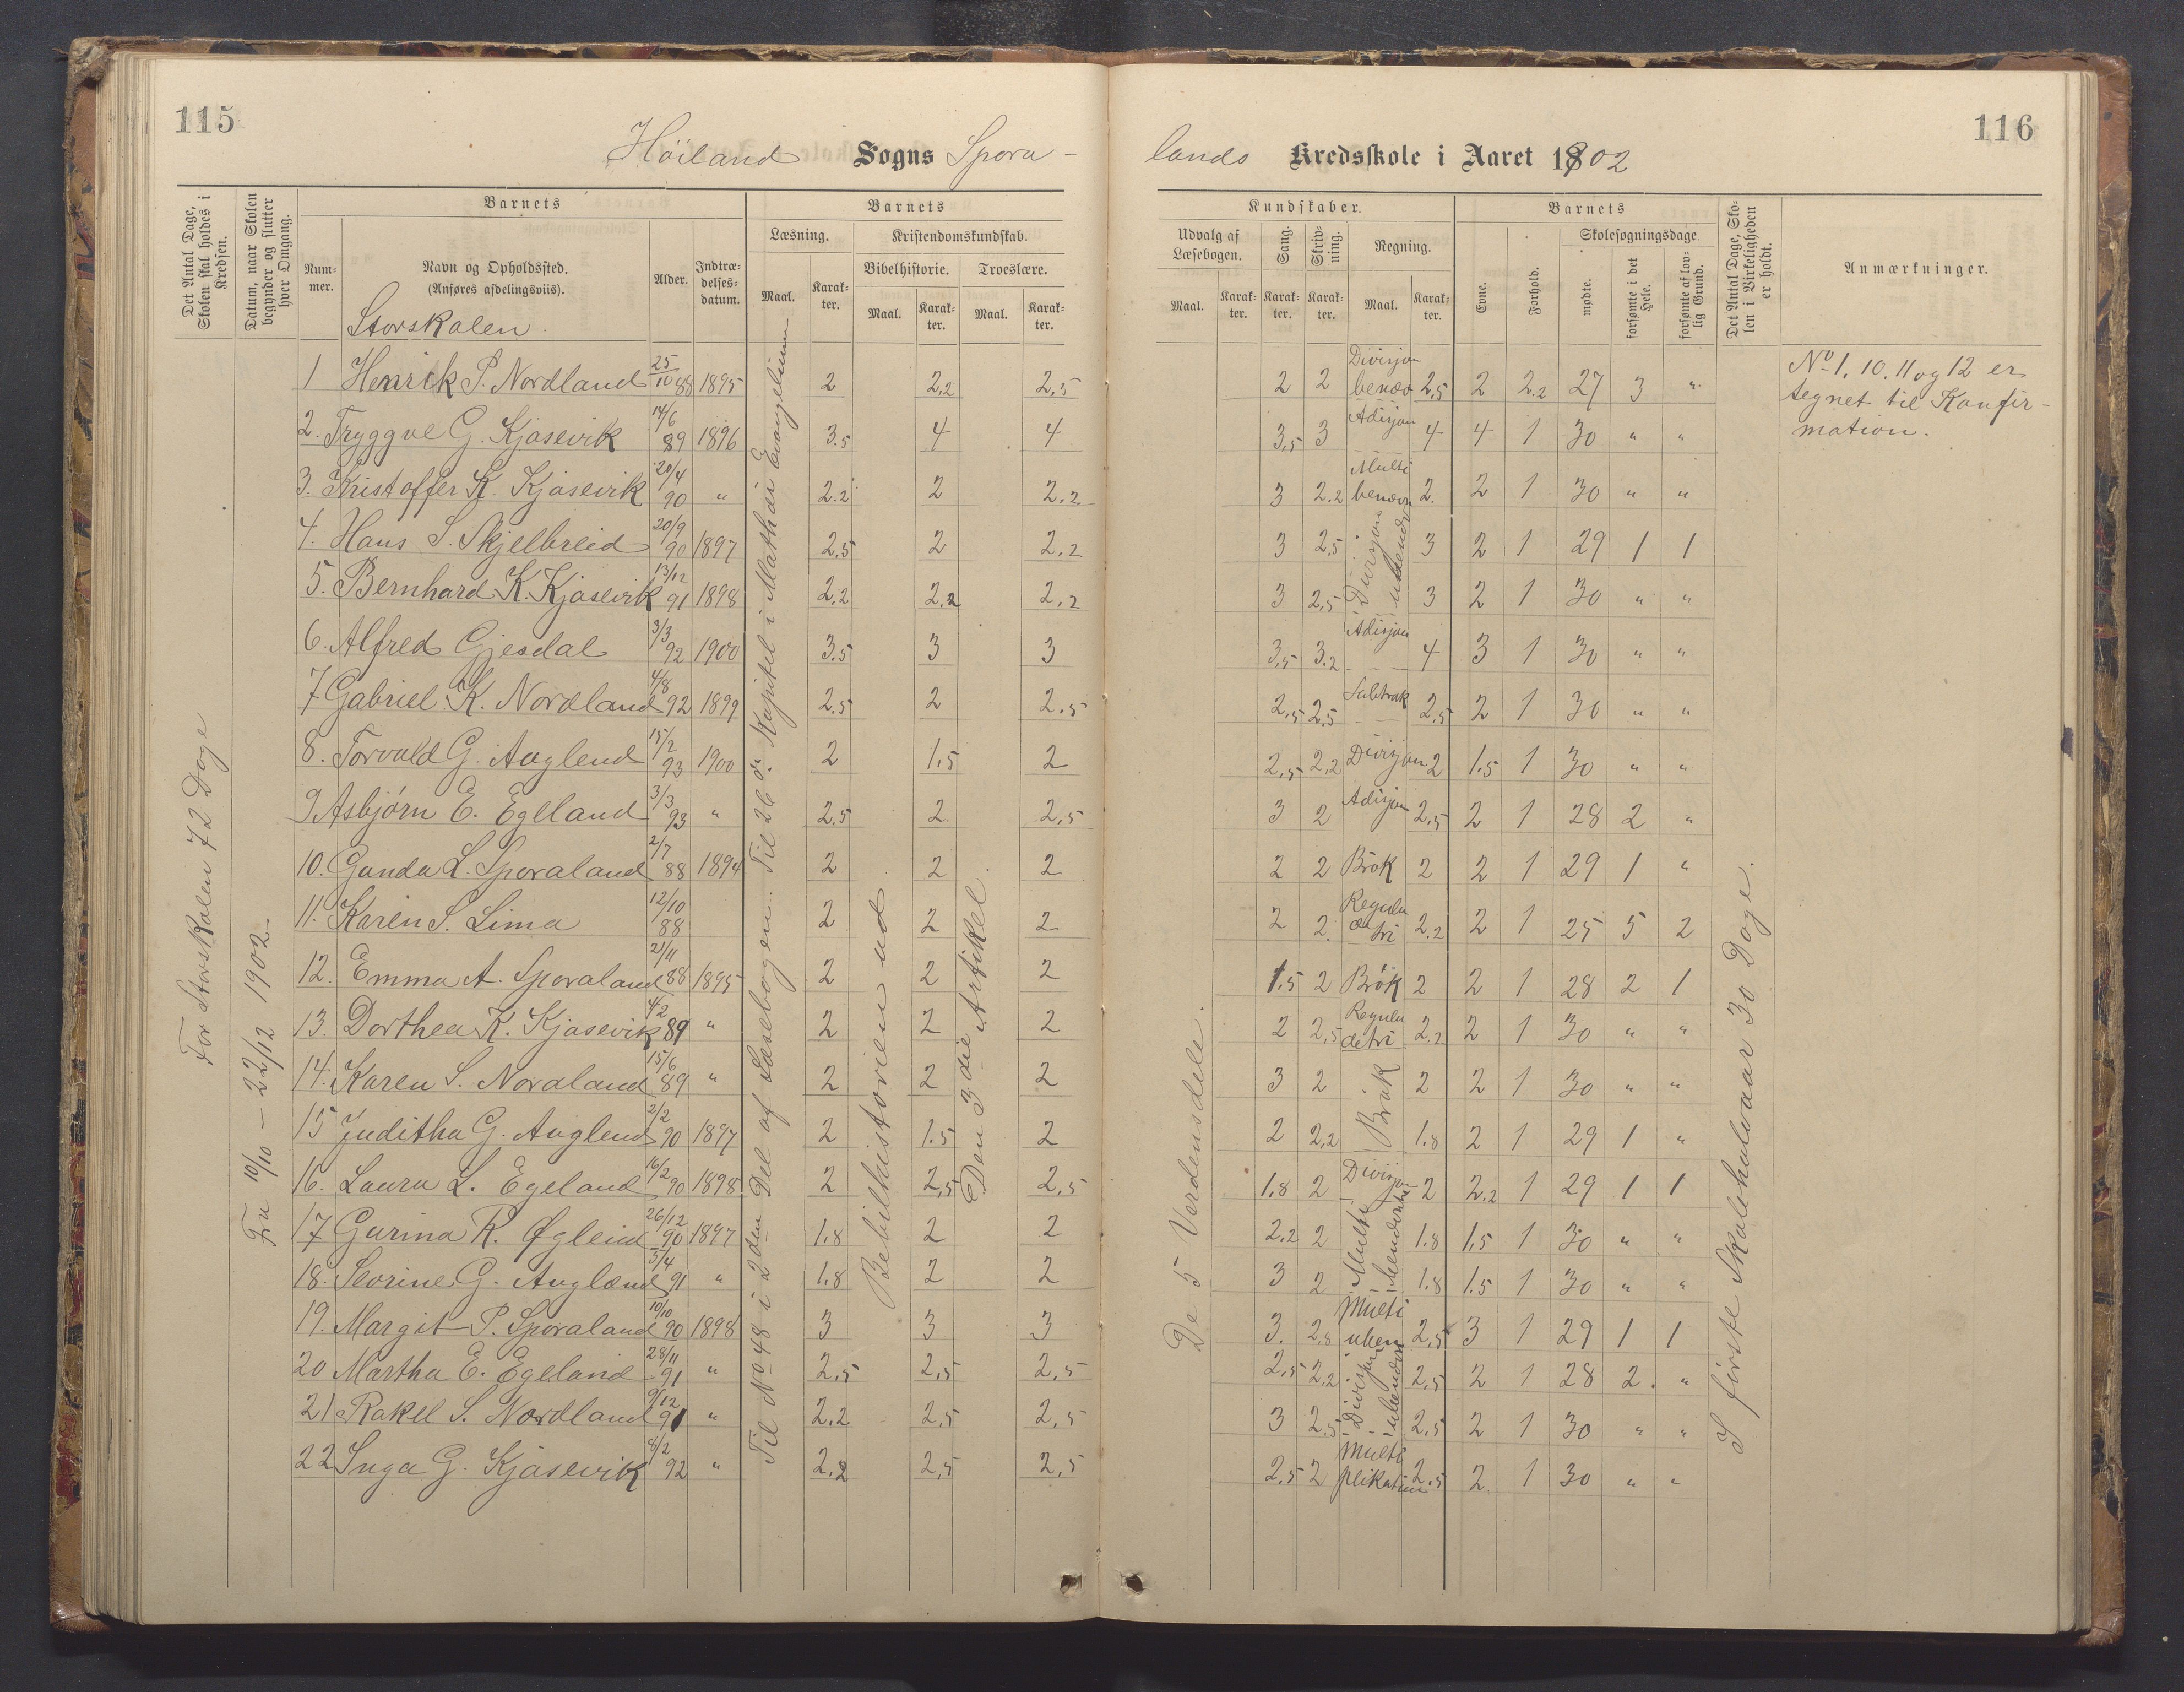 115
116
Höiland Sogns Spora-
lands Kredsskole i Aaret 1902
Det Antal Dage, Skolen skal holdes i Kredsen.
Datum, naar Skolen begynder og slutter hver Omgang.
Barnets
Num-mer.
Navn og Opholdssted.
(Anføres afdelingsviis).
Alder.
Indtræ-delses-datum.
Barnets
Læsning.
Kristendomskundskab.
Bibelhistorie.
Troeslære.
Maal.
Karak-ter.
Maal.
Karak-ter.
Maal.
Karak-ter.
Kundskaber.
Udvalg af Læsebogen.
Sang.
Skriv-ning.
Regning.
Maal.
Karak-ter.
Karak-ter.
Karak-ter.
Maal.
Karak-ter.
Barnets
Evne.
Forhold.
Skolesøgningsdage.
mødte.
forsømte i det Hele.
forsømte af lov-lig Grund.
Det Antal Dage, Sko-len i Virkeligheden er holdt.
Anmærkninger.
Storskolen.
For Storskolen 72 Dage
Fra 10/10 – 22/12 1902-
Til No 48 i 2den Del af Læsebogen. Til 26de Kapitel i Mathæi Evangelium
Bebilhistorien ud
Den 3die Artikel.
De 5 Verdensdele.
I første Skolehalvaar 30 Dage.
No 1, 10, 11 og 12 er
tegnet til Konfir-
mation.
1 Henrik P. Nordland 25/10 88 1895 2 2,2 2,5 2 2 Divisjon benæv 2,5 2 2.2 27 3 "
2. Tryggve G. Kjosevik 14/6 89 1896 3.5 4 4 3,5 3 Adisjon 4 4 1 30 " "
3. Kristoffer K. Kjosevik 20/4 90 " 2.2 2 2.2 3 2.2 Multi benævn 2. 2 1 30 " "
4. Hans S. Skjelbreid 20/9 90 1897 2,5 2 2,2 3 2,5 Divisjon ubenævn 3 2 1 29 1 1
5. Bernhard K. Kjosevik 13/12 91 1898 2,2 2.2 2,2 3 2,5 " 3 2 1 30 " "
6. Alfred Gjesdal 3/3 92 1900 3.5 3 3 3,5 3.2 Adisjon 4 3 1 30 " "
7 Gabriel K. Nordland 4/8 92 1899 2.5 2 2.5 2,5 2,5 Subtrak 2,5 2 1 30 " "
8. Torvald G. Auglend 15/2 93 1900 2 1,5 2 2,5 2,2 Divisjon 2 1.5 1 30 " "
9 Asbjørn E. Egeland 3/3 93 " 2.5 2 2,5 3 2 Adisjon 2,5 2 1 28 2 "
10. Gunda L. Sporaland 2/7 88 1894 2 2 2 2 2 Brøk 2 2 1 29 1 "
11. Karen S. Lima 12/10 88 2 2 2 2 2. Regula de tri 2.2 2 1 25 5 2
12. Emma A. Sporaland 21/11 88 1895 2 2 2 1.5 2 Brøk 2 2 1 28 2 1
13. Dorthea K. Kjosevik 4/2 89 " 2 2 2 2 2,5 Regula detri 2.2 2 1 30 " "
14. Karen S. Nordland 15/6 89 " 2 2 2 3 2 Brøk 2 2 1 30 " "
15 Juditha G. Auglend 2/2 90 1897 2 1.5 2 2 2,2 1.8 2 1 29 1 "
16. Laura L. Egeland 16/2 90 1898 2 2,5 2,5 1.8 2 Divisjon 2 2.2 1 29 1 1
17 Gurina R. Øglend 26/12 90 1897 1.8 2 2 2.2 2 Multi benævnte 1.8 1.5 1 30 " "
18. Severine G. Auglend 5/4 91 " 1.8 2 2 3 2 1.8 1.5 1 30 " "
19. Margit P. Sporaland 10/10 90 1898 3 3 3 3. 2,8 Multi uben 2,5 3 1 29 1 1
20 Martha E. Egeland 28/11 91 " 2,5 2,5 2,5 2,5 2,2 Divisjon ubenævn 2,5 2 1 28 2. "
21 Rakel S. Nordland 9/12 91 " 2,2 2,5 2,5 3 2,5 2,5 2 1 30 " "
22 Inga G. Kjosevik 8/2 92 " 2,2 2,5 2,5 2,5 2 Multiplikation 2,5 2 1 30 " "